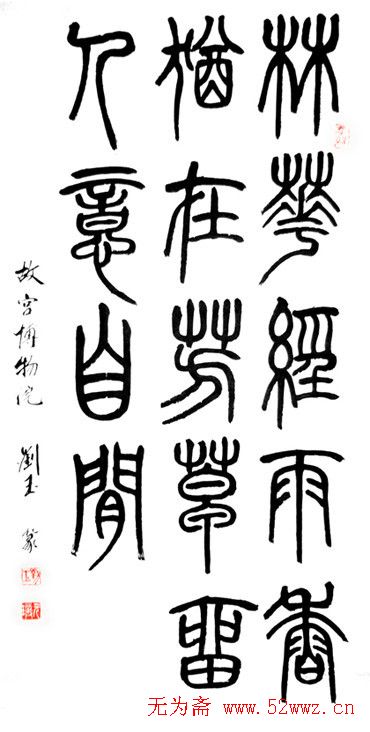 林華經雨香
猶在芳草留
人意自閒
故宮博物院 劉玉 篆
无为斋 www.52wwz.cn